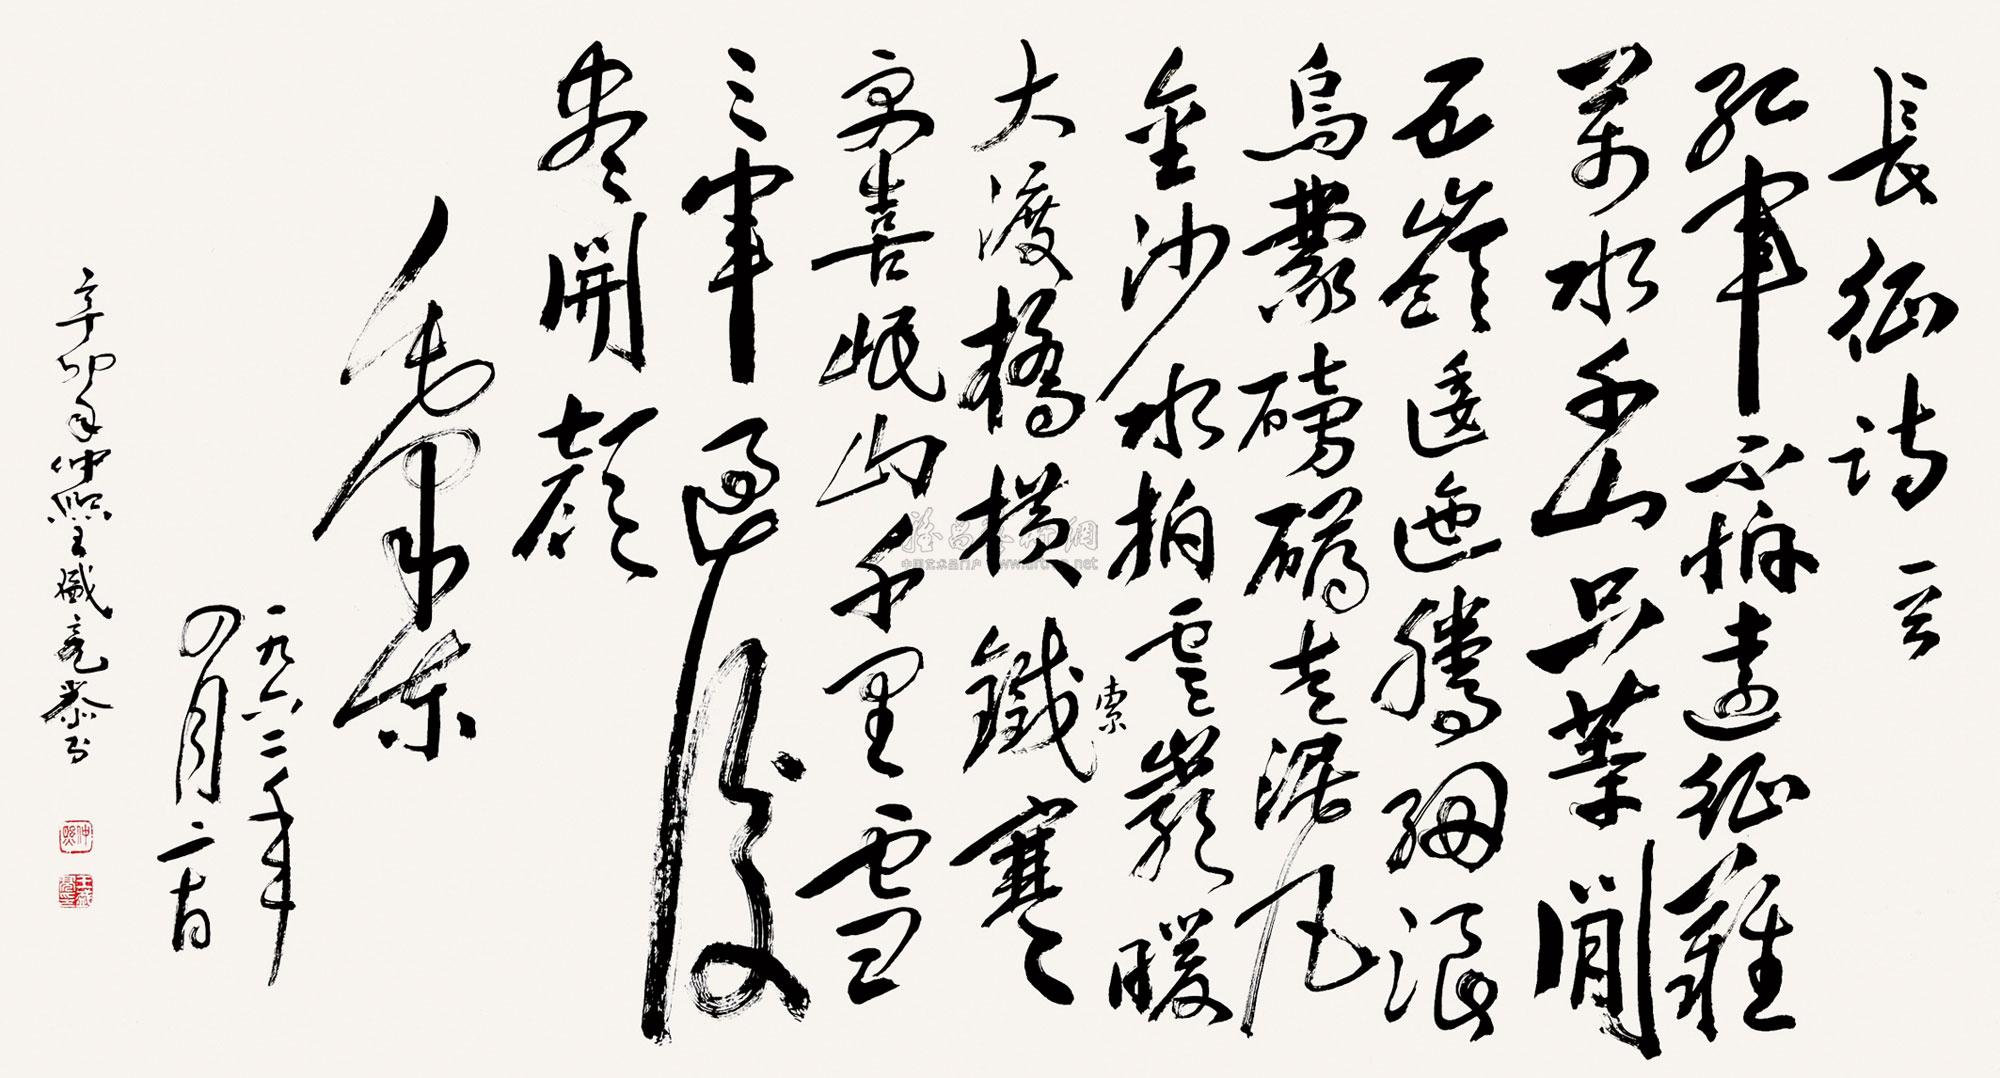 長征詩一首
紅軍不怕遠征難
萬水千山只等閒
五嶺逶迤騰細浪
烏蒙磅礴走泥丸
金沙水拍雲崖暖
大渡橋橫鐵索寒
更喜岷山千里雪
三軍過後
盡開顏
毛澤東
一九六二年
四月二十日
辛卯年仲熙王亮恭書
仲熙
中国艺术品门户